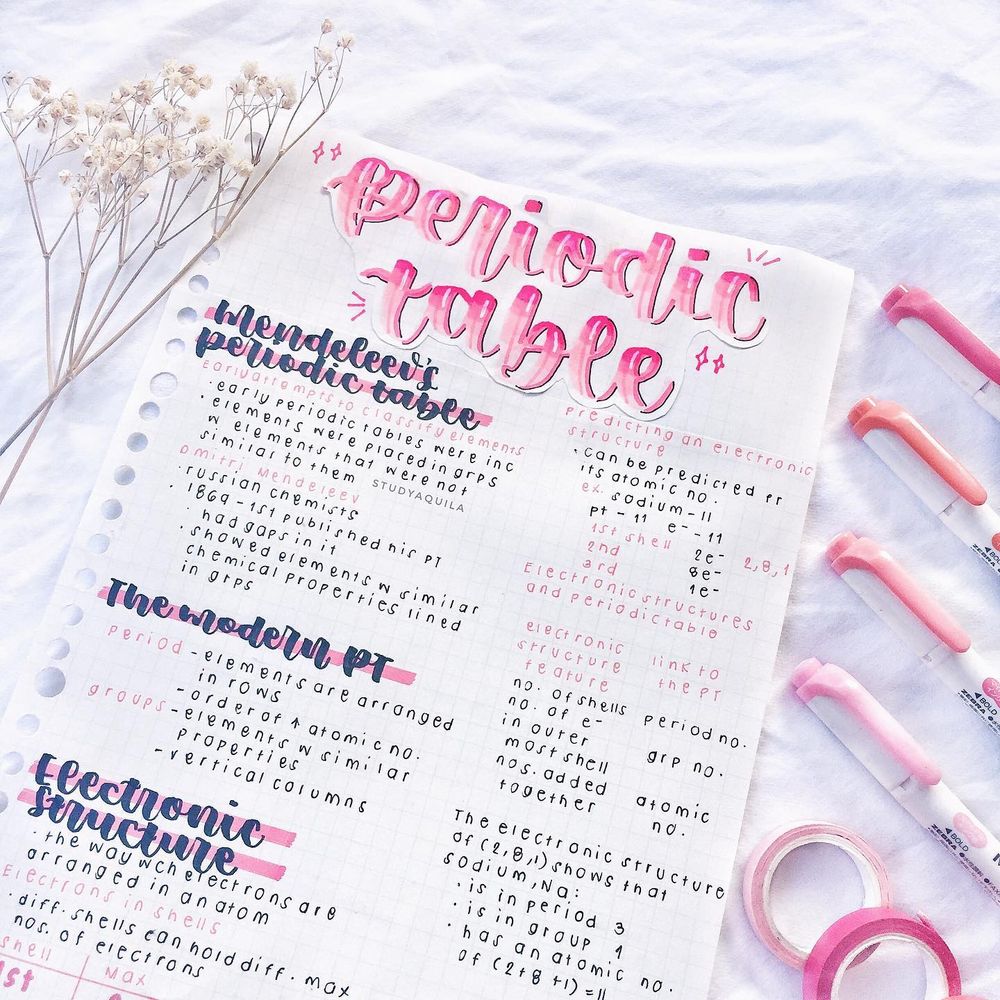 periodic
table
mendeleev's
periodic table
Early attempts to classify elements
· early periodic tables were inc
· elements were placed in grps
w elements that were not
similar to them
STUDYAQUILA
Dmitri Mendeleev
· russian chemists
· 1869 - 1st published his PT
· had gaps in it
· showed elements w similar
chemical properties lined
in grps
The modern PT
period - elements are arranged
in rows
- order of ↑ atomic no.
groups - elements w similar
properties
- vertical columns
Electronic
structure
· the way wch electrons are
arranged in an atom
Electrons in shells
· diff. shells can hold diff. max
nos. of electrons
shell Max
1st
Predicting an electronic
structure
· can be predicted fr
its atomic no.
ex. sodium - 11
pt - 11 e⁻ - 11
1st shell 2e⁻
2nd 8e⁻ 2,8,1
3rd 1e⁻
Electronic structures
and periodic table
electronic
structure link to
feature the PT
no. of shells period no.
no. of e⁻
in outer
most shell grp no.
nos. added
together atomic
no.
The electronic structure
of (2,8,1) shows that
sodium, Na:
· is in period 3
· is in group 1
· has an atomic no.
of (2+8+1) = 11
BOLD
ZEBRA
BOLD
ZEBRA
BOLD
ZEBRA